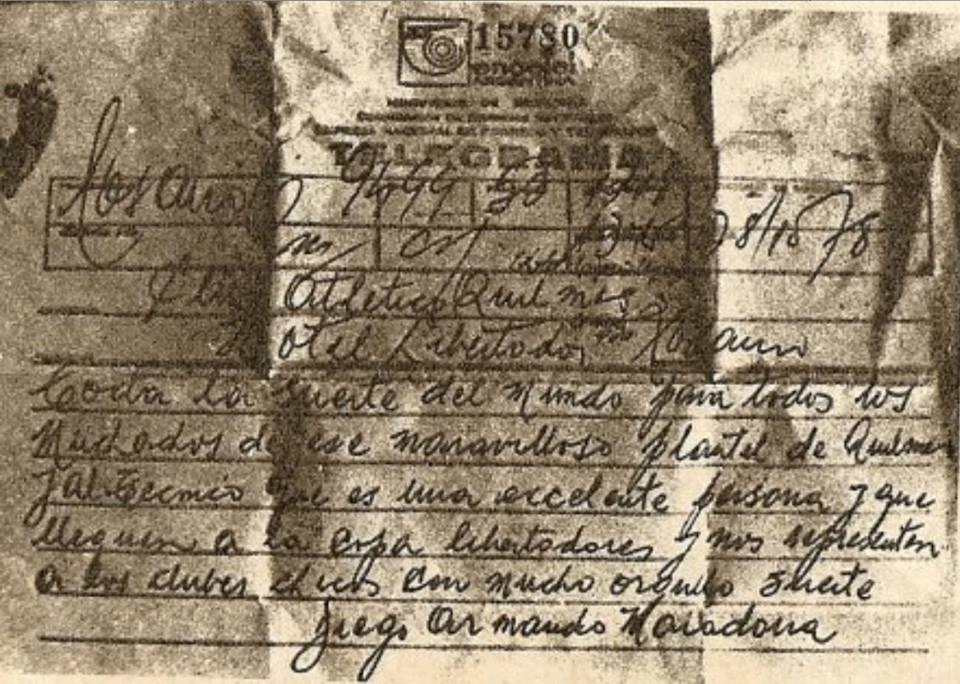 15780
encotel
EMPRESA NACIONAL DE CORREOS Y TELEGRAFOS
TELEGRAMA
Rosario 28/10 78
Club Atletico Quilmes
Hotel Libertador Rosario
toda la suerte del Mundo para todos los
Muchachos de ese maravilloso plantel de Quilmes
y al tecnico que es una excelente persona y que
lleguen a la copa libertadores y nos representen
a los clubes chicos con mucho orgullo suerte
Diego Armando Maradona